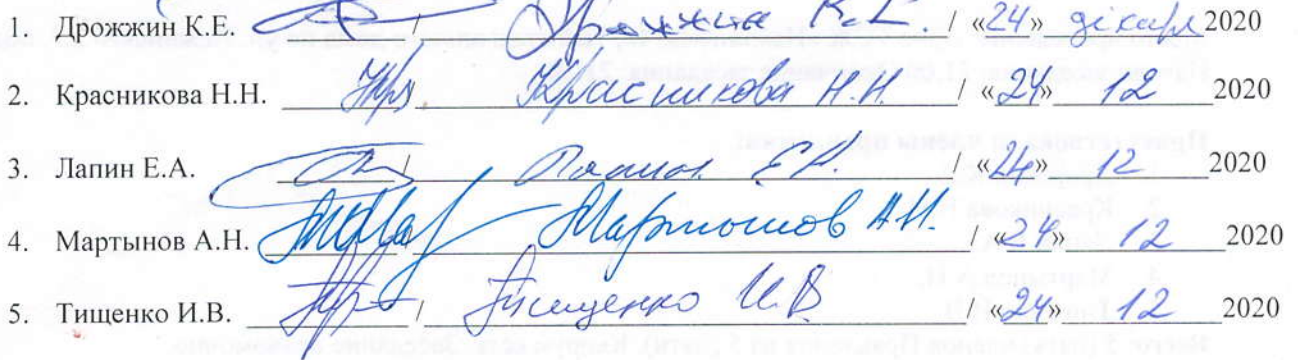 1. Дрожжин К.Е. / Дрожжин К.Е. / «24» декабря 2020
2. Красникова Н.Н. Красникова Н.Н. / «24» 12 2020
3. Лапин Е.А. / Лапин Е.А. / «24» 12 2020
4. Мартынов А.Н. / Мартынов А.Н. / «24» 12 2020
5. Тищенко И.В. / Тищенко И.В / «24» 12 2020